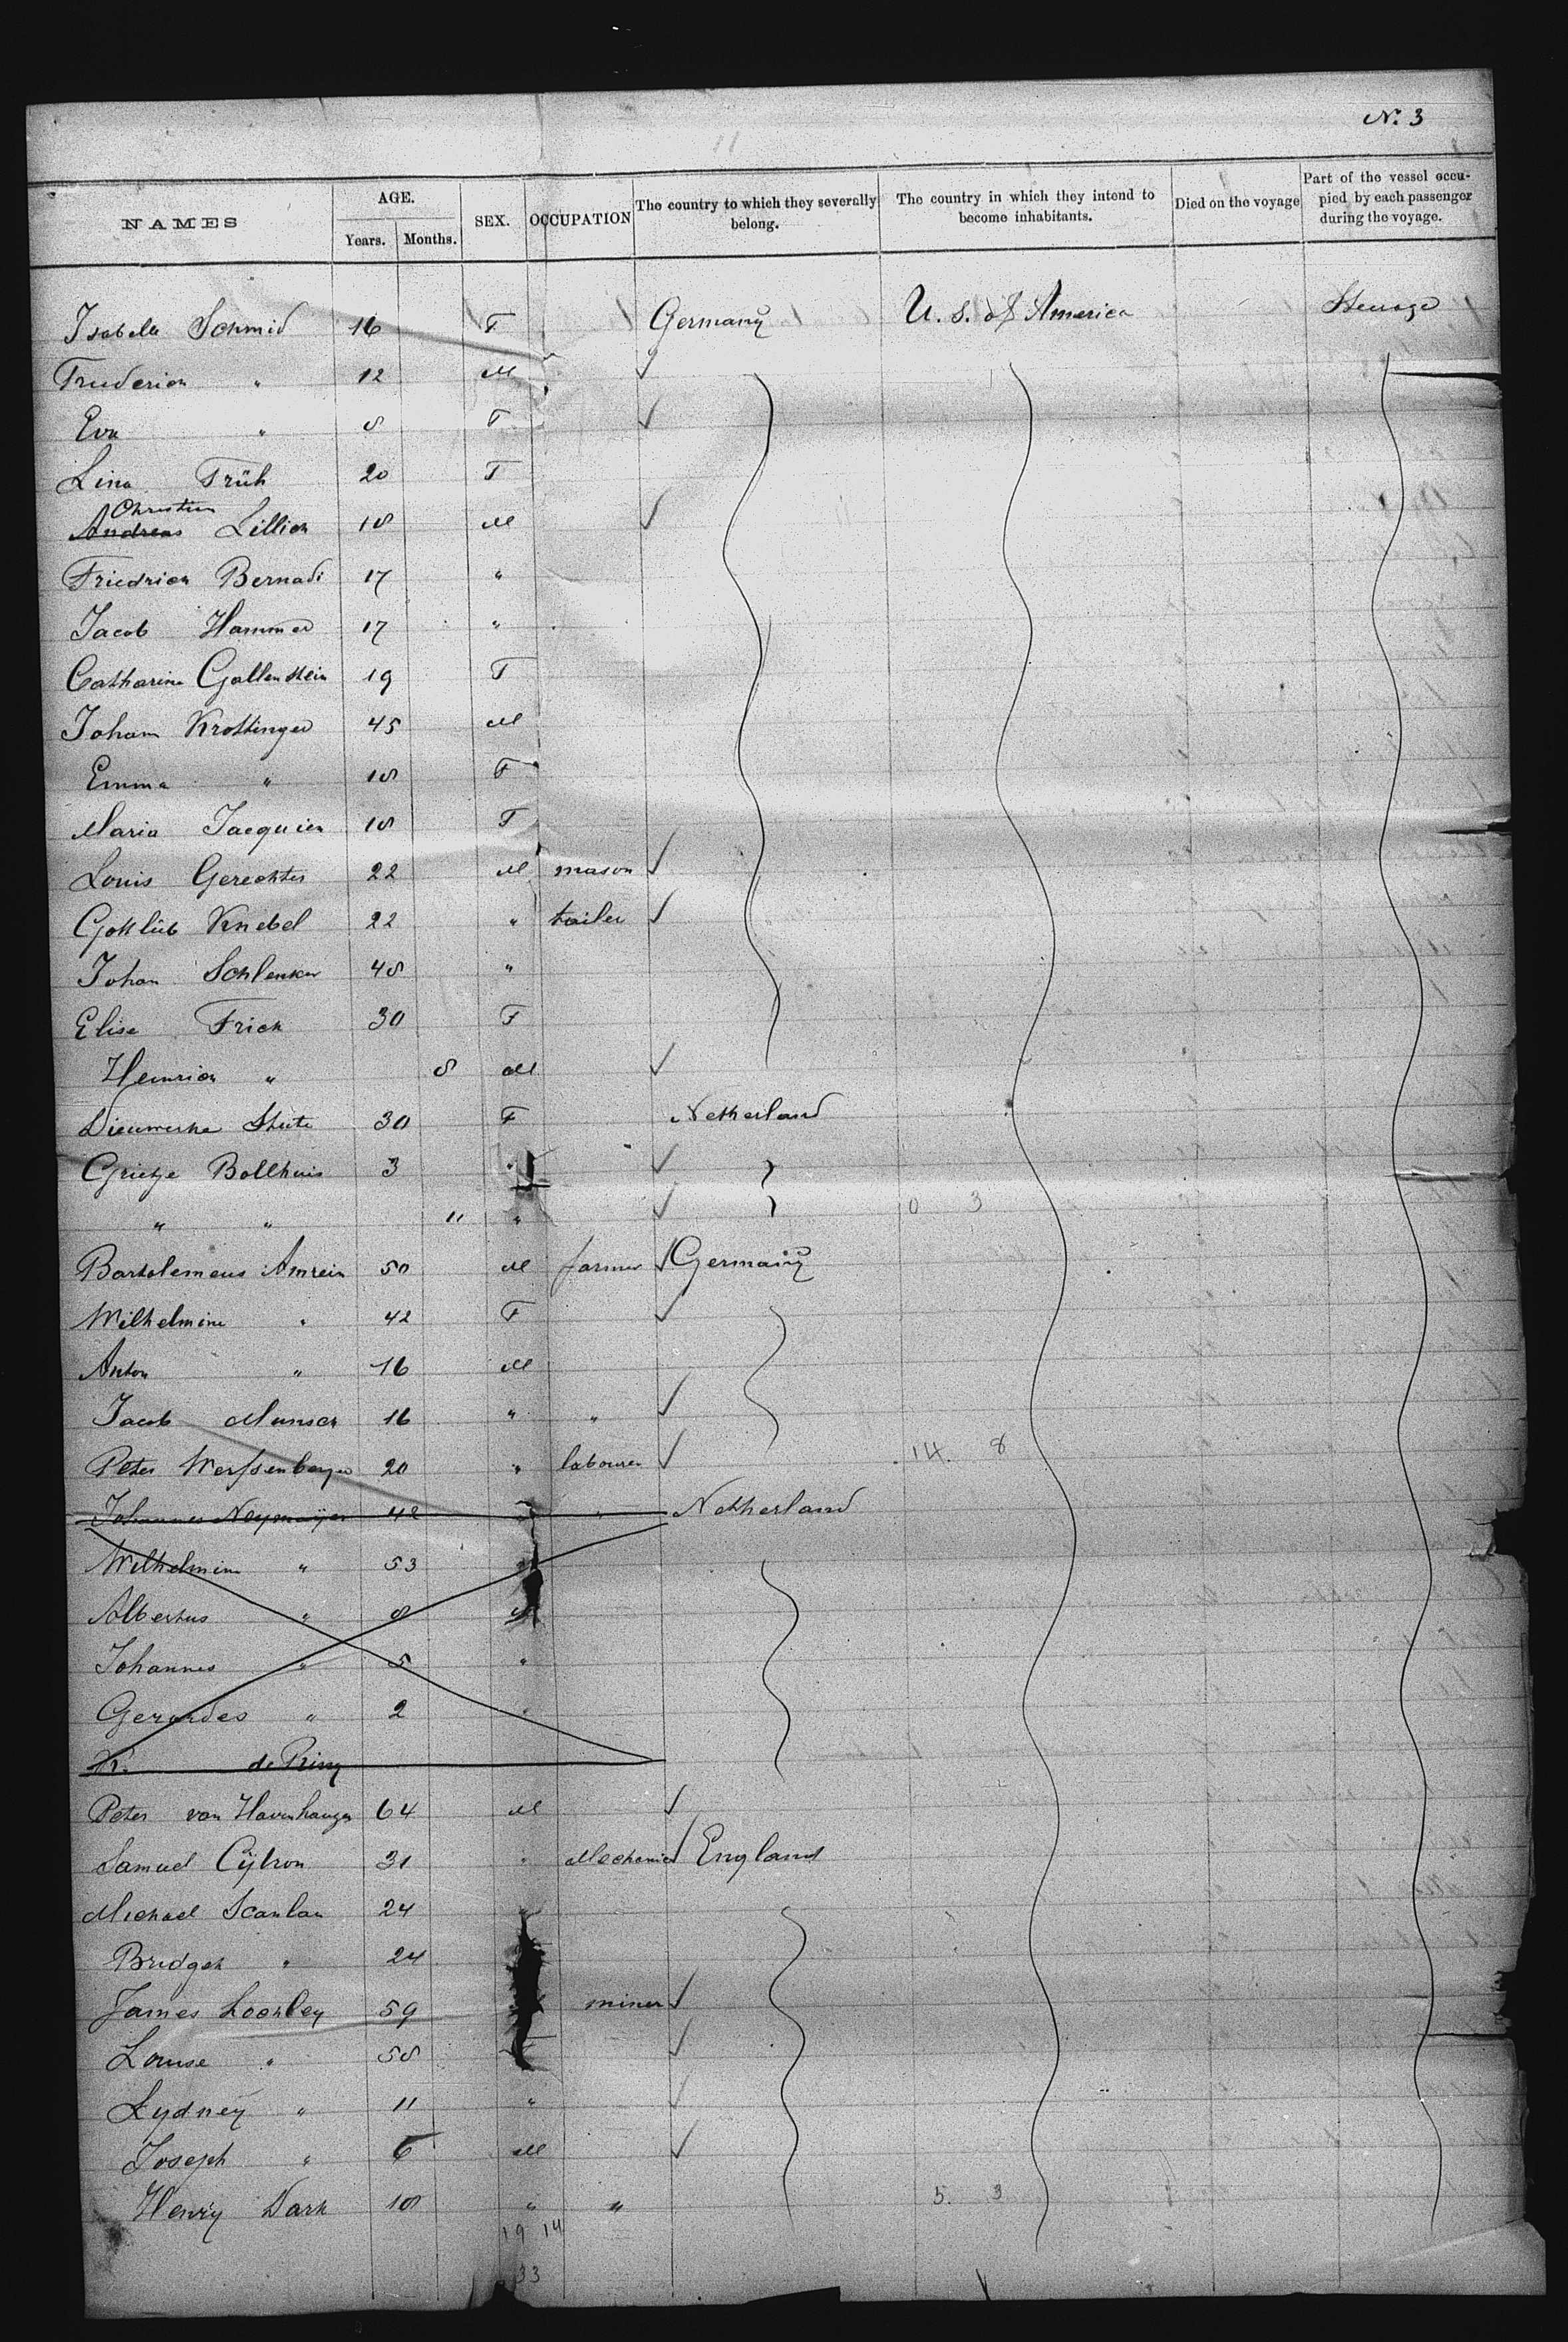 No. 3
NAMES AGE. Years. Months. SEX. OCCUPATION The country to which they severally belong. The country in which they intend to become inhabitants. Died on the voyage Part of the vessel occupied by each passenger during the voyage.
Isabella Schmid 16 F Germany U. S. of America Steerage
Frederich " 12 M ✓
Eva " 8 F ✓
Lina Früh 20 F
Christian
Andreas Lillich 18 M ✓
Friedrich Bernadi 17 "
Jacob Hammer 17 "
Catharine Gallenstein 19 F
Johann Krottinger 45 M
Emma " 18 F
Maria Jacquien 18 F
Louis Gerechter 22 M mason ✓
Gottlieb Knebel 22 " tailer ✓
Johan Schlenker 48 "
Elise Frick 30 F
Heinrich " 8 M ✓
Dieuwerke Stuit 30 F Netherland
Grietje Bollhuis 3 " ✓
" " 11 " ✓ 0 3
Bartolemeus Amrein 50 M farmer ✓ Germany
Wilhelmine " 42 F ✓
Anton " 16 M
Jacob Munsch 16 " " ✓
Peter 20 " labourer ✓ 14. 8
Johannes Neymaijer 42 " " Netherland
Wilhelmine " 53 "
Albertus " 8 M
Johannes " 5 "
Gerardes " 2 "
K. de Prins
Peter van Havenhangen 64 M ✓
Samuel Cijtron 31 " Mechanic ✓ England
Michael Scanlan 24 "
Bridget " 24
James Lockley 59 miner ✓
Louise " 58 F ✓
Sydney " 11 " ✓
Joseph " 6 M ✓
Henry Dark 18 " " 5. 3
19 14
33